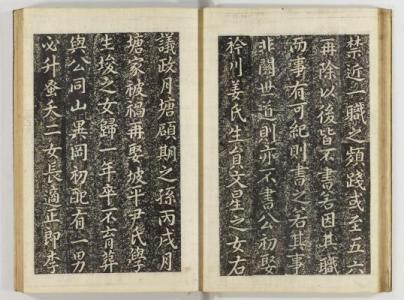 禁近一職之頻踐或至五六
再除以後皆不書若因其職
而事有可紀則書之若其事
非關世道則亦不書公初娶
衿川姜氏生員文星之女右
議政月塘碩期之孫丙戌月
塘家被禍再娶坡平尹氏學
生埈之女歸一年卒不育葬
與公同山異岡初配有一男
必升蚤夭二女長適正郎李